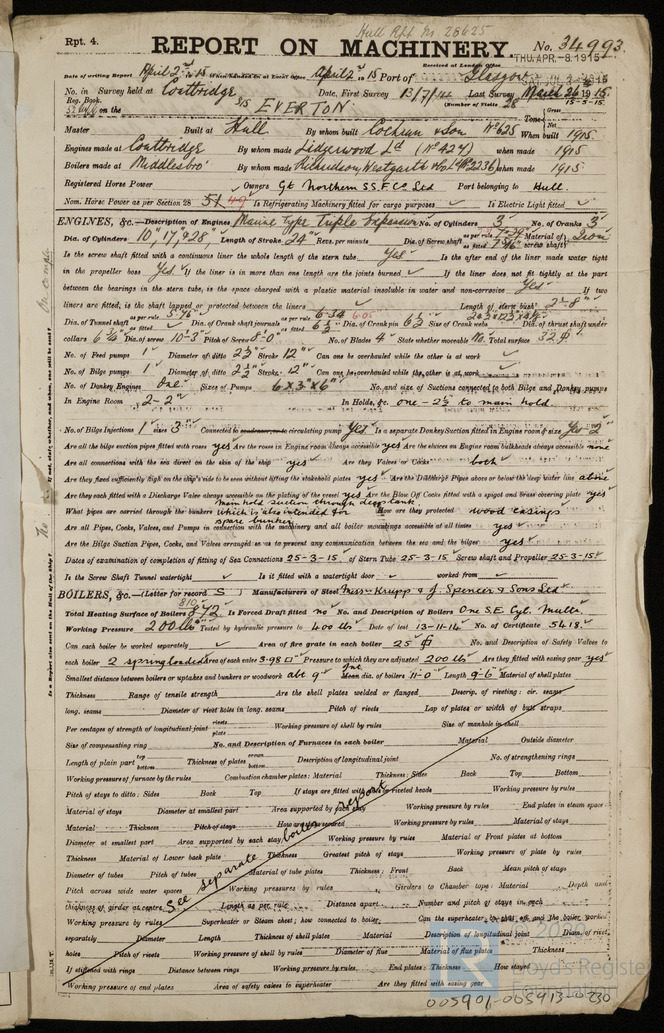 Hull Rpt No 26625
Rpt. 4.
REPORT ON MACHINERY.
No. 34993.
Received at London Office THU. APR. 8. 1915
Date of writing Report April 2nd 15 When handed in at Local Office April 2 15 Port of Glasgow
No. in Survey held at Coatbridge Date, First Survey 13/7/14 Last Survey March 26 1915
Reg. Book. (Number of Visits 28 15-5-15
on the S/S EVERTON Tons Gross Net
Master Built at Hull By whom built Cochran & Son No 625 When built 1915
Engines made at Coatbridge By whom made Lidgerwood Ld (No 427) when made 1915
Boilers made at Middlesbro' By whom made Richardson, Westgarth & Co Ld No 2236 when made 1915
Registered Horse Power Owners Gt Northern S.S.F. Co Ltd Port belonging to Hull.
Nom. Horse Power as per Section 28 51 Is Refrigerating Machinery fitted for cargo purposes Is Electric Light fitted
ENGINES, &c.—Description of Engines Marine type Triple Expansion No. of Cylinders 3 No. of Cranks 3
Dia. of Cylinders 10", 17", & 28" Length of Stroke 24" Revs. per minute Dia. of Screw shaft as per rule as fitted Material of screw shaft Iron
Is the screw shaft fitted with a continuous liner the whole length of the stern tube Yes Is the after end of the liner made water tight
in the propeller boss Yes If the liner is in more than one length are the joints burned If the liner does not fit tightly at the part
between the bearings in the stern tube, is the space charged with a plastic material insoluble in water and non-corrosive Yes If two
liners are fitted, is the shaft lapped or protected between the liners Length of stern bush 2'-8"
Dia. of Tunnel shaft as per rule 5.76 as fitted Dia. of Crank shaft journals as per rule 6.34 6.05 as fitted 6½" Dia. of Crank pin 6½ Size of Crank webs Dia. of thrust shaft under
collars 6½" Dia. of screw 10'-3" Pitch of Screw No. of Blades 4 State whether moveable No. Total surface 32
No. of Feed pumps 1 Diameter of ditto 2½ Stroke 12" Can one be overhauled while the other is at work
No. of Bilge pumps 1 Diameter of ditto 2½ Stroke 12" Can one be overhauled while the other is at work
No. of Donkey Engines One Sizes of Pumps 6 x 3" x 6" No. and size of Suctions connected to both Bilge and Donkey pumps
In Engine Room 2 - 2" In Holds, &c. one - 2½ to main hold
No. of Bilge Injections 1 sizes 3" Connected to condenser, or to circulating pump Yes Is a separate Donkey Suction fitted in Engine room & size Yes - 2"
Are all the bilge suction pipes fitted with roses yes Are the roses in Engine room always accessible yes Are the sluices on Engine room bulkheads always accessible none
Are all connections with the sea direct on the skin of the ship yes Are they Valves or Cocks both
Are they fixed sufficiently high on the ship's side to be seen without lifting the stokehold plates yes Are the Discharge Pipes above or below the deep water line above
Are they each fitted with a Discharge Valve always accessible on the plating of the vessel yes Are the Blow Off Cocks fitted with a spigot and brass covering plate yes
What pipes are carried through the bunkers main hold suction through deep tank which is also intended for spare bunker How are they protected wood casings
Are all Pipes, Cocks, Valves, and Pumps in connection with the machinery and all boiler mountings accessible at all times yes
Are the Bilge Suction Pipes, Cocks, and Valves arranged so as to prevent any communication between the sea and the bilges yes
Dates of examination of completion of fitting of Sea Connections 25-3-15 of Stern Tube 25-3-15 Screw shaft and Propeller 25-3-15
Is the Screw Shaft Tunnel watertight Is it fitted with a watertight door worked from
BOILERS, &c.—(Letter for record S) Manufacturers of Steel Messrs Krupp & J. Spencer & Sons Ltd
Total Heating Surface of Boilers 872 810 Is Forced Draft fitted no No. and Description of Boilers One S.E. Cyl. Mult.
Working Pressure 200 lbs Tested by hydraulic pressure to 400 lbs Date of test 13-11-14 No. of Certificate 5418
Can each boiler be worked separately Area of fire grate in each boiler 25 No. and Description of Safety Valves to
each boiler 2 spring loaded Area of each valve 3.98 □" Pressure to which they are adjusted 200 lbs Are they fitted with easing gear yes
Smallest distance between boilers or uptakes and bunkers or woodwork abt 9" Int Mean dia. of boilers 11-0 Length 9-6" Material of shell plates
Thickness Range of tensile strength Are the shell plates welded or flanged Descrip. of riveting: cir. seams
long. seams Diameter of rivet holes in long. seams Pitch of rivets Lap of plates or width of butt straps
Per centages of strength of longitudinal joint rivets plate Working pressure of shell by rules Size of manhole in shell
Size of compensating ring No. and Description of Furnaces in each boiler Material Outside diameter
Length of plain part top bottom Thickness of plates crown bottom Description of longitudinal joint No. of strengthening rings
Working pressure of furnace by the rules Combustion chamber plates: Material Thickness: Sides Back Top Bottom
Pitch of stays to ditto: Sides Back Top If stays are fitted with nuts or riveted heads Working pressure by rules
Material of stays Diameter at smallest part Area supported by each stay Working pressure by rules End plates in steam space:
Material Thickness Pitch of stays How are stays secured Working pressure by rules Material of stays
Diameter at smallest part Area supported by each stay Working pressure by rules Material of Front plates at bottom
Thickness Material of Lower back plate Thickness Greatest pitch of stays Working pressure of plate by rules
Diameter of tubes Pitch of tubes Material of tube plates Thickness: Front Back Mean pitch of stays
Pitch across wide water spaces Working pressures by rules Girders to Chamber tops: Material Depth and
thickness of girder at centre Length as per rule Distance apart Number and pitch of stays in each
See separate boiler report
Working pressure by rules Superheater or Steam chest; how connected to boiler Can the superheater be shut off and the boiler worked
separately Diameter Length Thickness of shell plates Material Description of longitudinal joint Diam. of rivet
holes Pitch of rivets Working pressure of shell by rules Diameter of flue Material of flue plates Thickness
If stiffened with rings Distance between rings Working pressure by rules End plates: Thickness How stayed
Working pressure of end plates Area of safety valves to superheater Are they fitted with easing gear
Lloyd's Register Foundation
005901-005913-0230